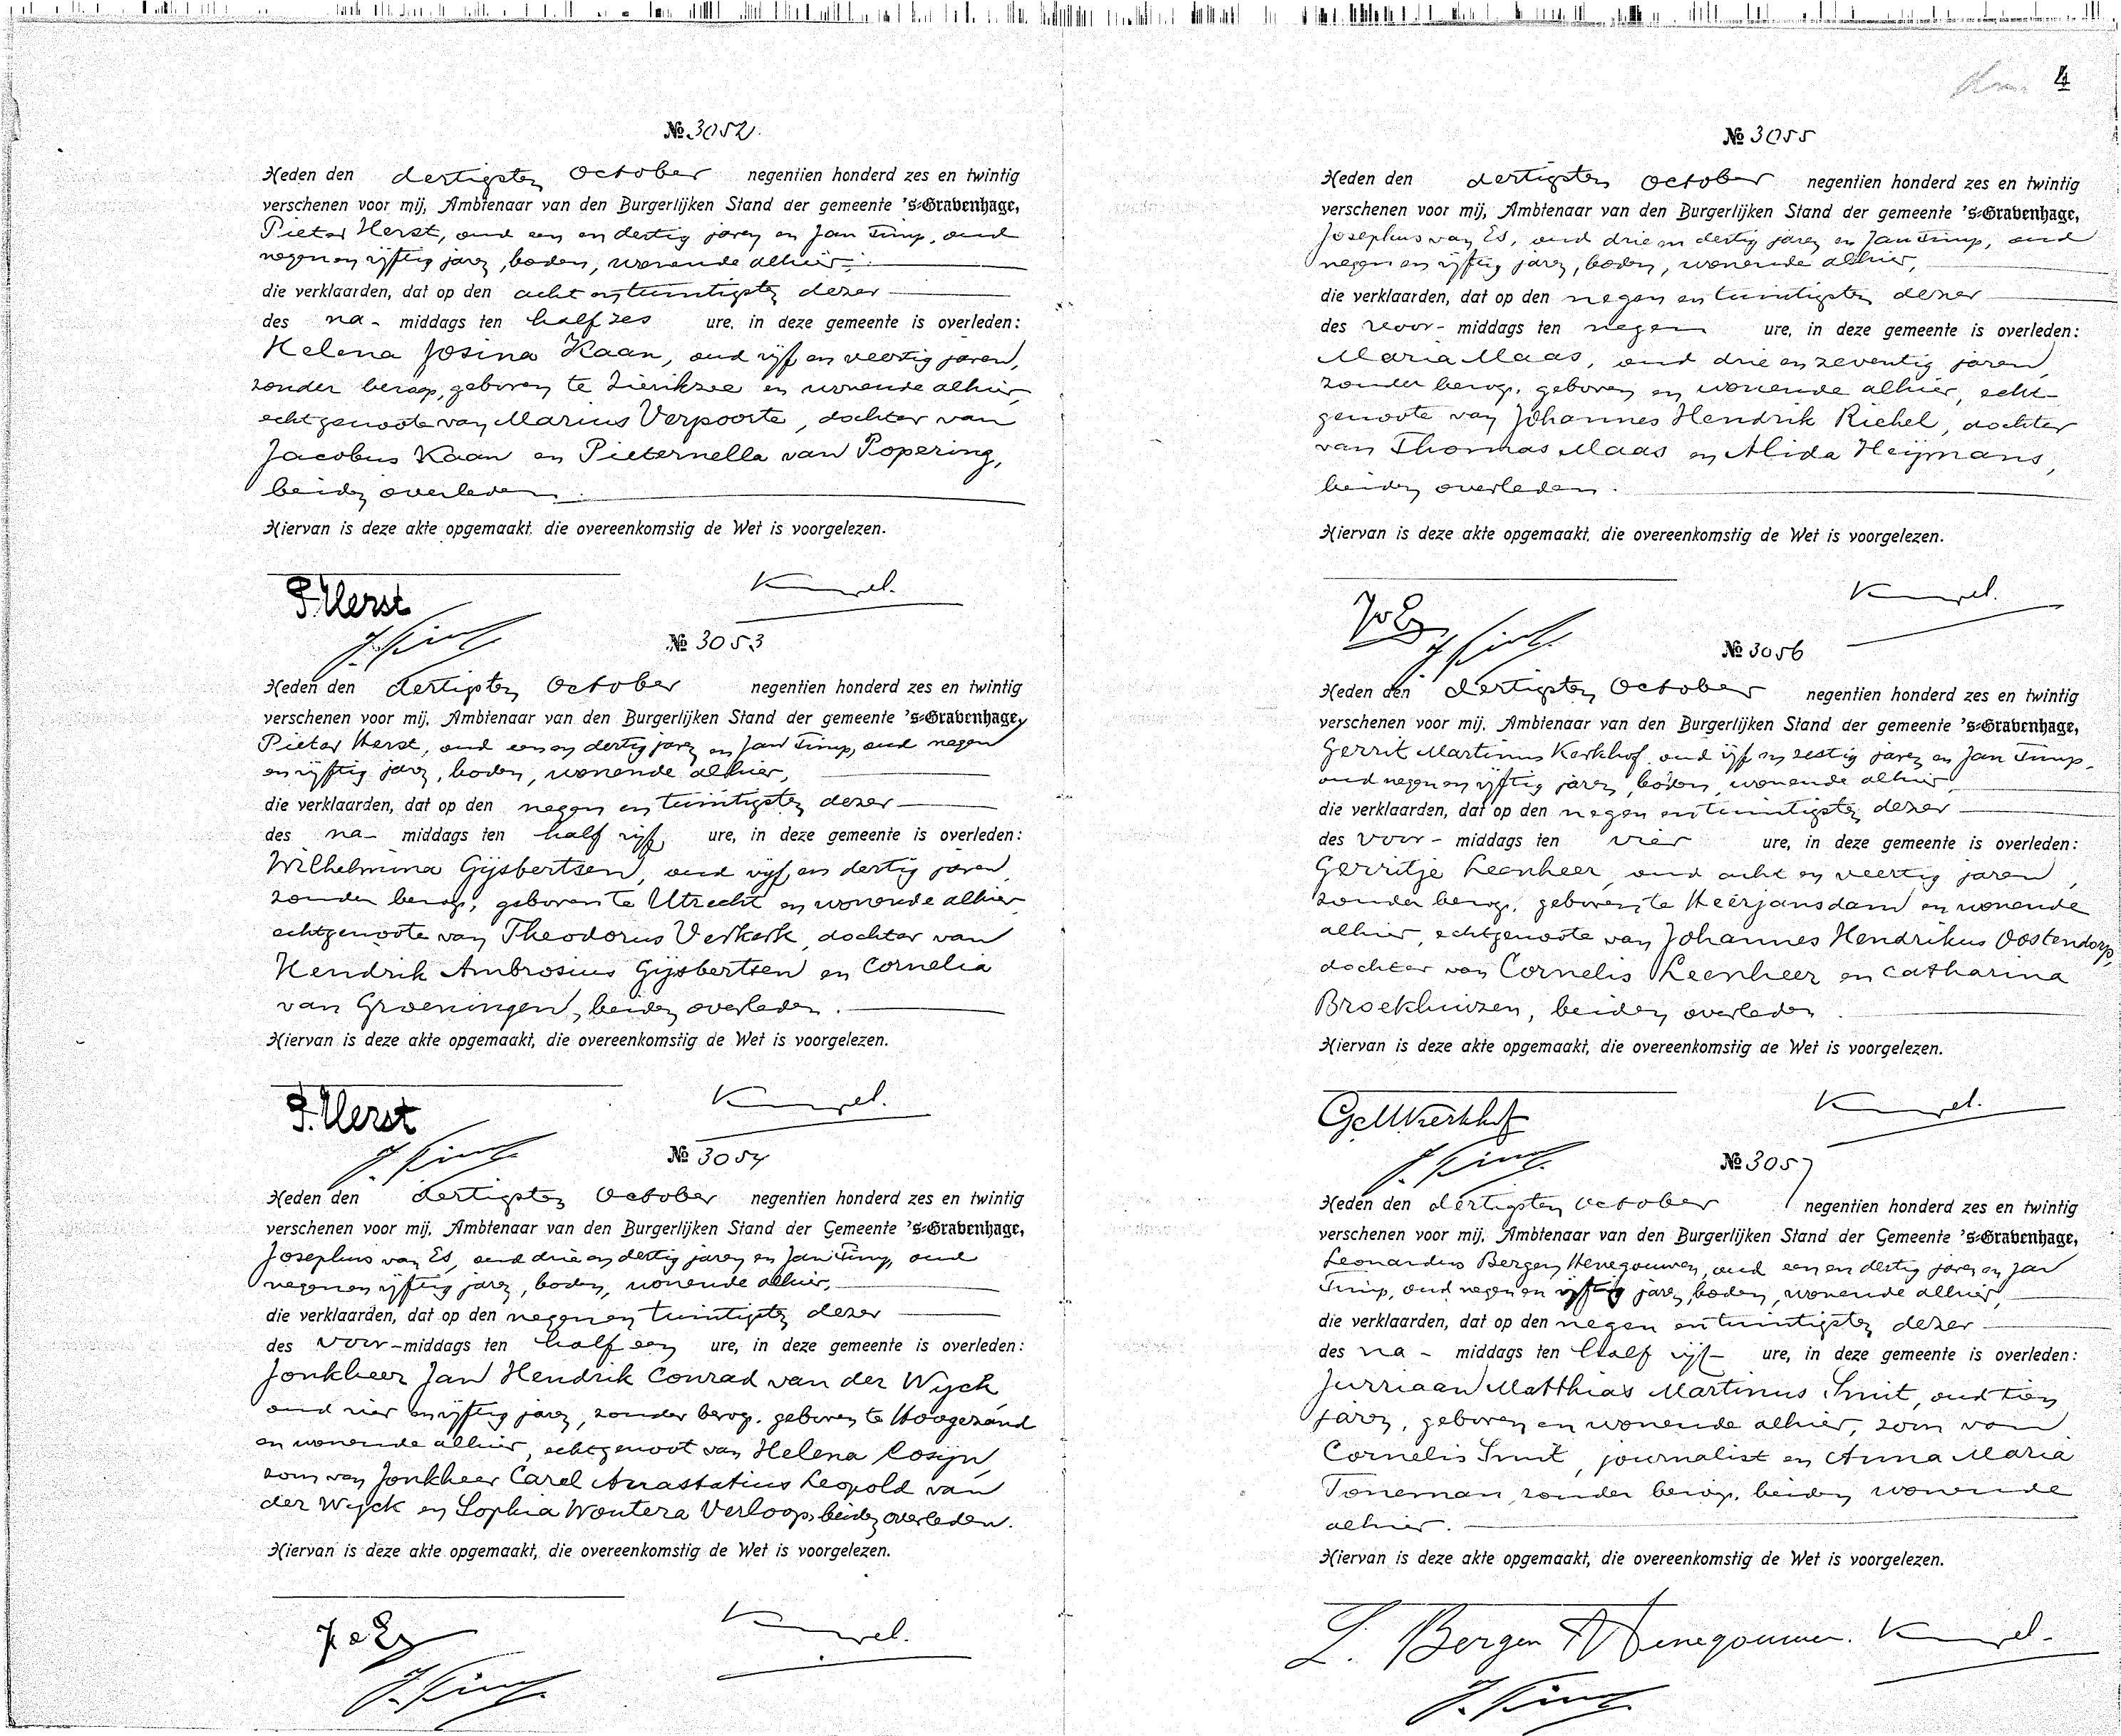 4
№ 3052.
Heden den dertigsten October negentien honderd zes en twintig
verschenen voor mij, Ambtenaar van den Burgerlijken Stand der gemeente 's-Gravenhage,
Pieter Herst, oud een en dertig jaren en Jan Timp, oud
negen en vijftig jaren, boden, wonende alhier,
die verklaarden, dat op den acht en twintigsten dezer
des na- middags ten half zes ure, in deze gemeente is overleden:
Helena Josina Kaan, oud vijf en veertig jaren,
zonder beroep, geboren te Zierikzee en wonende alhier,
echtgenoote van Marinus Verpoorte, dochter van
Jacobus Kaan en Pieternella van Popering,
beiden overleden.
Hiervan is deze akte opgemaakt, die overeenkomstig de Wet is voorgelezen.
P. Herst
J. Timp
№ 3053
Heden den dertigsten October negentien honderd zes en twintig
verschenen voor mij, Ambtenaar van den Burgerlijken Stand der gemeente 's-Gravenhage,
Pieter Herst, oud een en dertig jaren en Jan Timp, oud negen
en vijftig jaren, boden, wonende alhier,
die verklaarden, dat op den negen en twintigsten dezer
des na- middags ten half vijf ure, in deze gemeente is overleden:
Wilhelmina Gijsbertsen, oud vijf en dertig jaren,
zonder beroep, geboren te Utrecht en wonende alhier,
echtgenoote van Theodorus Verkerk, dochter van
Hendrik Ambrosius Gijsbertsen en Cornelia
van Groeningen, beiden overleden.
Hiervan is deze akte opgemaakt, die overeenkomstig de Wet is voorgelezen.
P. Herst
J. Timp
№ 3054
Heden den dertigsten October negentien honderd zes en twintig
verschenen voor mij, Ambtenaar van den Burgerlijken Stand der Gemeente 's-Gravenhage,
Josephus van Es, oud drie en dertig jaren en Jan Timp, oud
negen en vijftig jaren, boden, wonende alhier,
die verklaarden, dat op den negen en twintigsten dezer
des voor-middags ten half een ure, in deze gemeente is overleden:
Jonkheer Jan Hendrik Conrad van der Wyck,
oud vier en vijftig jaren, zonder beroep, geboren te Hoogezand
en wonende alhier, echtgenoot van Helena Cosijn,
zoon van Jonkheer Carel Anastatius Leopold van
der Wyck en Sophia Woutera Verloop, beiden overleden.
Hiervan is deze akte opgemaakt, die overeenkomstig de Wet is voorgelezen.
J v Es
J. Timp
№ 3055
Heden den dertigsten October negentien honderd zes en twintig
verschenen voor mij, Ambtenaar van den Burgerlijken Stand der gemeente 's-Gravenhage,
Josephus van Es, oud drie en dertig jaren en Jan Timp, oud
negen en vijftig jaren, boden, wonende alhier,
die verklaarden, dat op den negen en twintigsten dezer
des voor- middags ten negen ure, in deze gemeente is overleden:
Maria Maas, oud drie en zeventig jaren,
zonder beroep, geboren en wonende alhier, echt-
genoote van Johannes Hendrik Richel, dochter
van Thomas Maas en Alida Heijmans,
beiden overleden.
Hiervan is deze akte opgemaakt, die overeenkomstig de Wet is voorgelezen.
J v Es
J. Timp
№ 3056
Heden den dertigsten October negentien honderd zes en twintig
verschenen voor mij, Ambtenaar van den Burgerlijken Stand der gemeente 's-Gravenhage,
Gerrit Martinus Kerkhof, oud vijf en zestig jaren en Jan Timp,
oud negen en vijftig jaren, boden, wonende alhier,
die verklaarden, dat op den negen en twintigsten dezer
des voor- middags ten vier ure, in deze gemeente is overleden:
Gerritje Leenheer, oud acht en veertig jaren,
zonder beroep, geboren te Heerjansdam en wonende
alhier, echtgenoote van Johannes Hendrikus Oostendorp,
dochter van Cornelis Leenheer en Catharina
Broekhuizen, beiden overleden.
Hiervan is deze akte opgemaakt, die overeenkomstig de Wet is voorgelezen.
G M Kerkhof
J. Timp
№ 3057
Heden den dertigsten October negentien honderd zes en twintig
verschenen voor mij, Ambtenaar van den Burgerlijken Stand der Gemeente 's-Gravenhage,
Leonardus Bergen Henegouwen, oud een en dertig jaren en Jan
Timp, oud negen en vijftig jaren, boden, wonende alhier,
die verklaarden, dat op den negen en twintigsten dezer
des na - middags ten half vijf ure, in deze gemeente is overleden:
Jurriaan Matthias Martinus Smit, oud tien
jaren, geboren en wonende alhier, zoon van
Cornelis Smit, journalist en Anna Maria
Toneman, zonder beroep, beiden wonende
alhier.
Hiervan is deze akte opgemaakt, die overeenkomstig de Wet is voorgelezen.
L. Bergen Henegouwen.
J. Timp